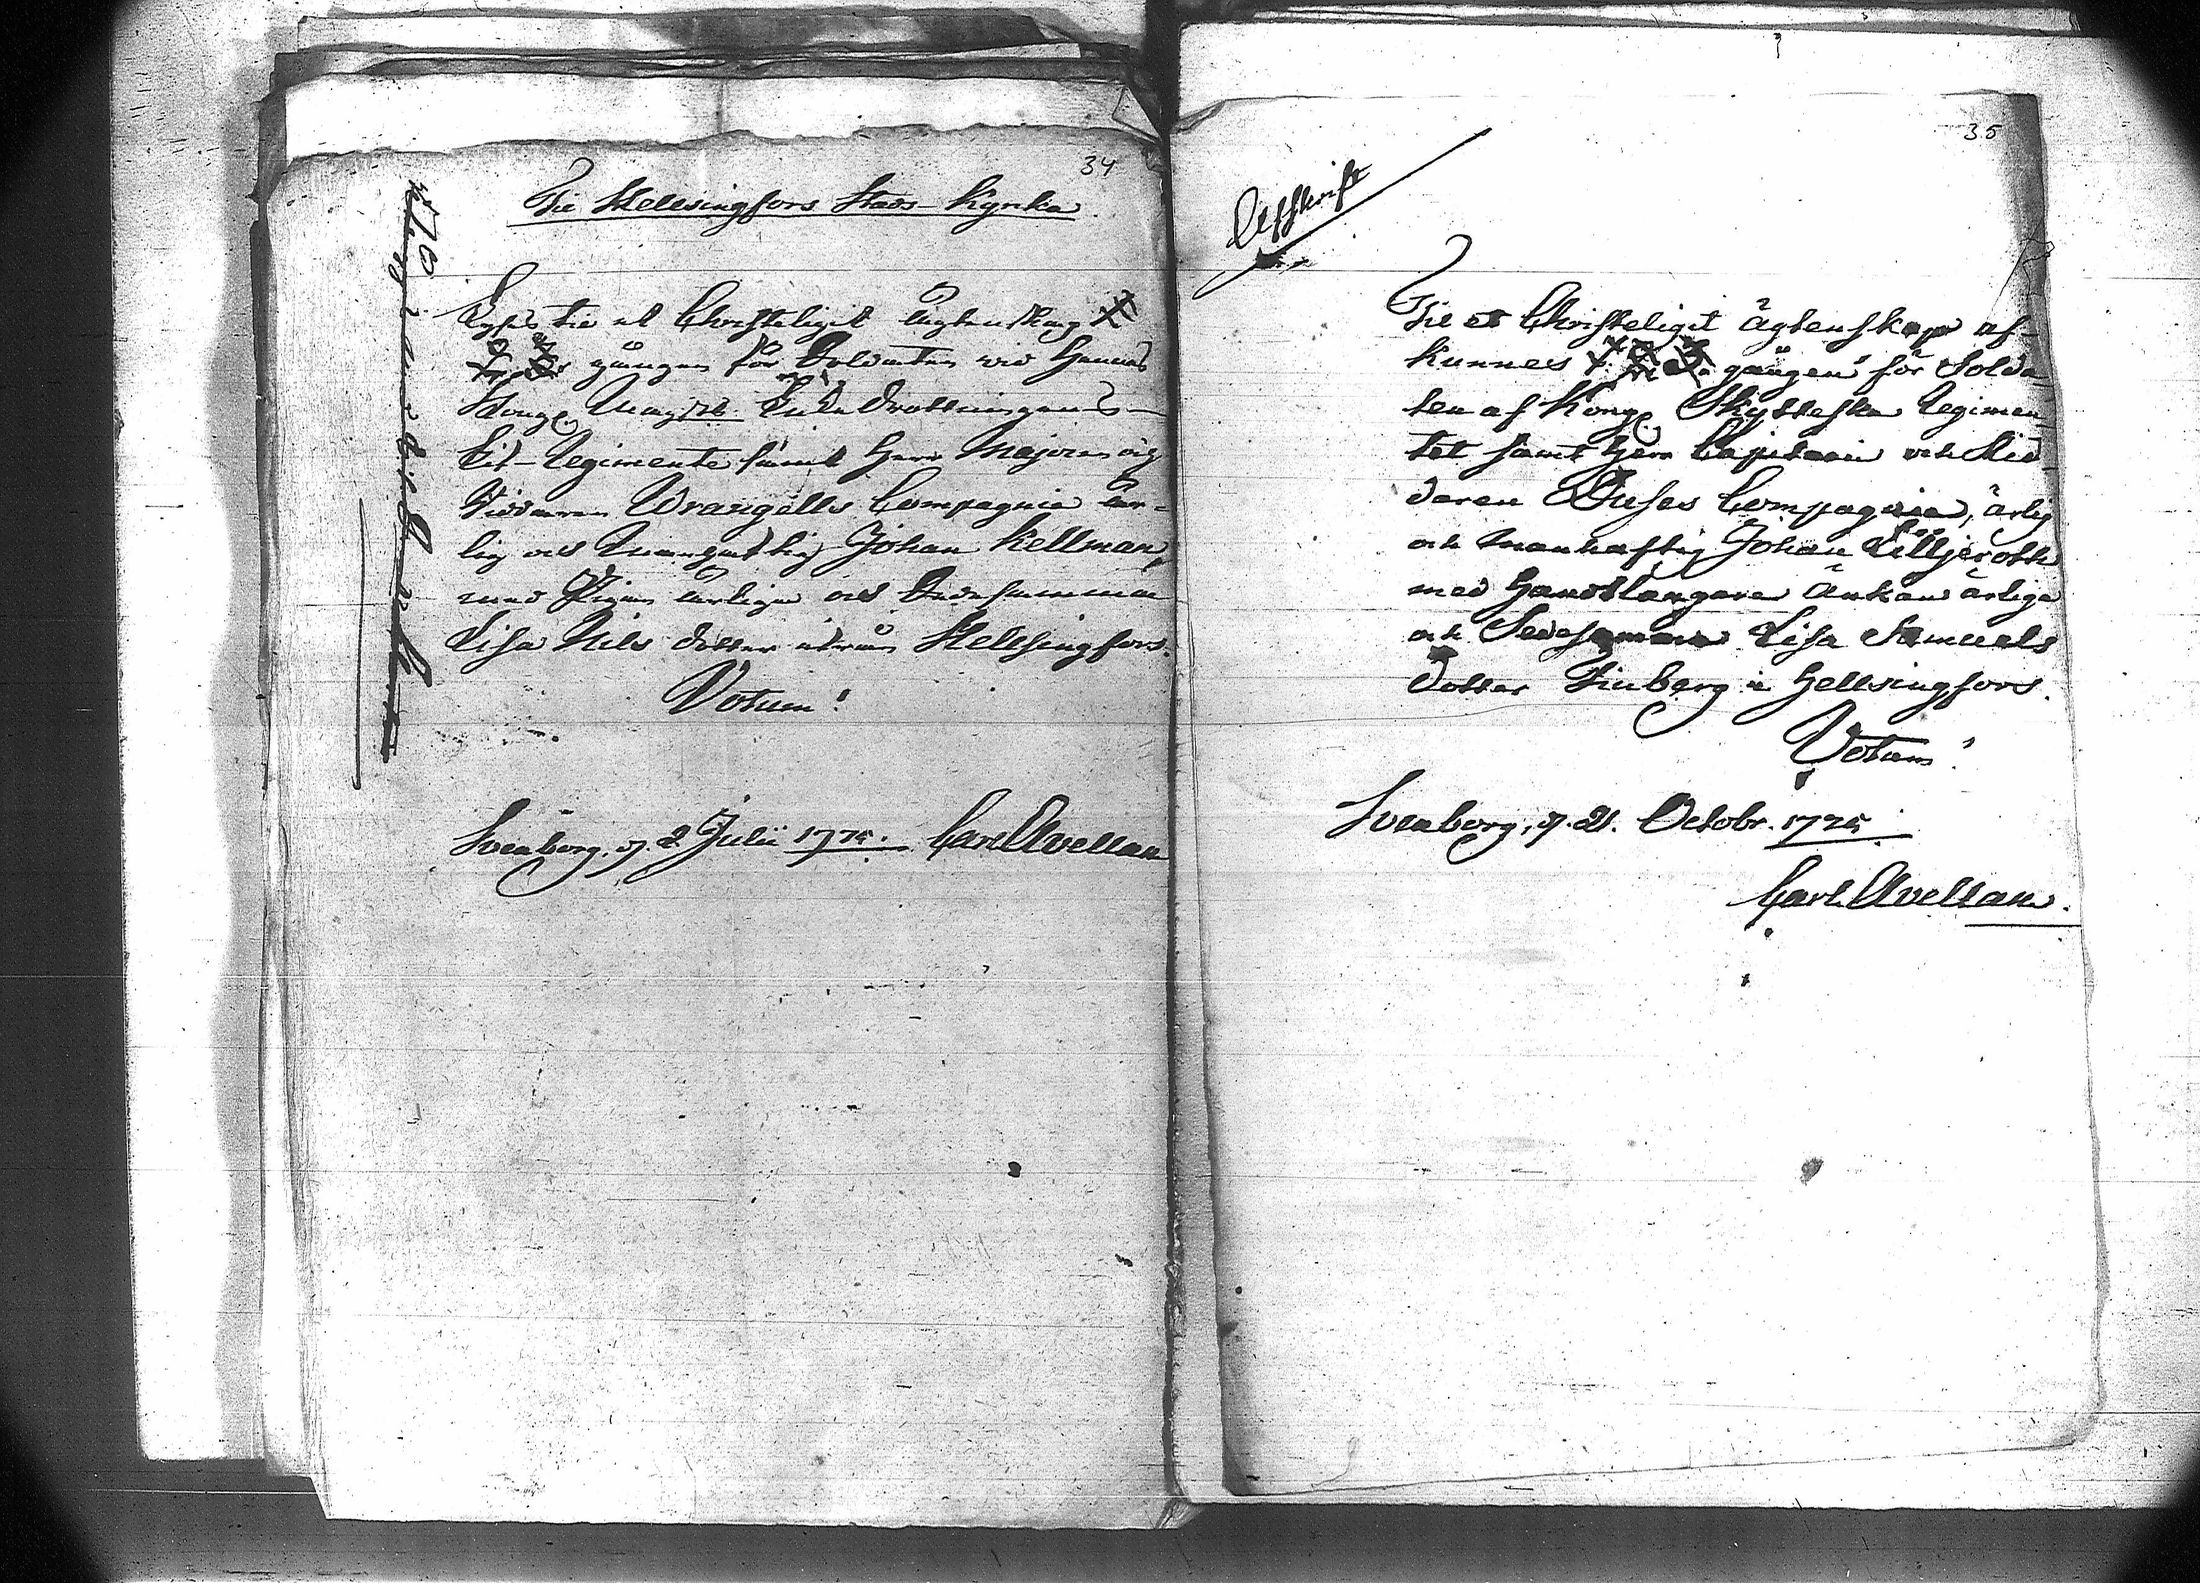 34
Til Hellsingfors Stads-Kyrka.
Lyses til et Christeligit Ägtenskap
gången för Soldaten vid Hennes
Kongl. Maij:ts Enke Drottningens
Lif-Regimente samt Herr Majoren og
Riddaren Wrangells Compagnie är-
lig och Manhaftig Johan Kellman,
med Pigan ärliga och Dydesamma
Lisa Nils dotter utur Hellsingfors.
Votum!
Sveaborg, d. 2 Julii 1775. Carl Avellan
35
Afskrift
Til et Christeligit ägtenskap af-
kunnes gången för Solda-
ten af Kongl. Skytteska Regimen-
tet samt Herr Capitain och Rid-
daren Duses Compagnie, ärlig
och Manhaftig Johan Lilljeroth
med Handtlangare Änkan ärliga
och Sedesamma Lisa Samuels
dotter Finberg i Hellsingfors.
Votum!
Sveaborg, d. 21. Octobr. 1775.
Carl Avellan.